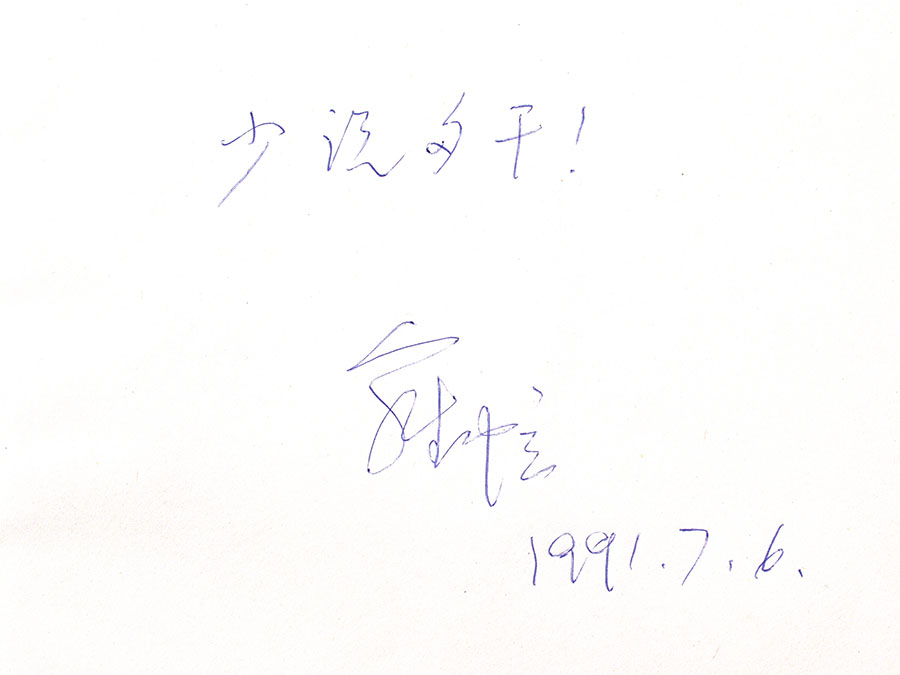 少说多干!
1991.7.6.